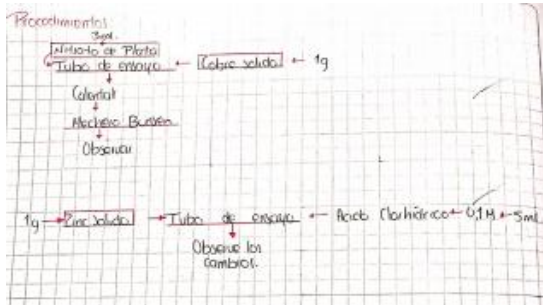 Procedimientos:
3mL
Nitrato de Plata
Tubo de ensayo ← Cobre solido ← 1g
Calentar
Mechero Bunsen
Observar
1g → Zinc Solido → Tubo de ensayo ← Acido Clorhidrico ← 0,1M ← 5mL
Observe los
Cambios.